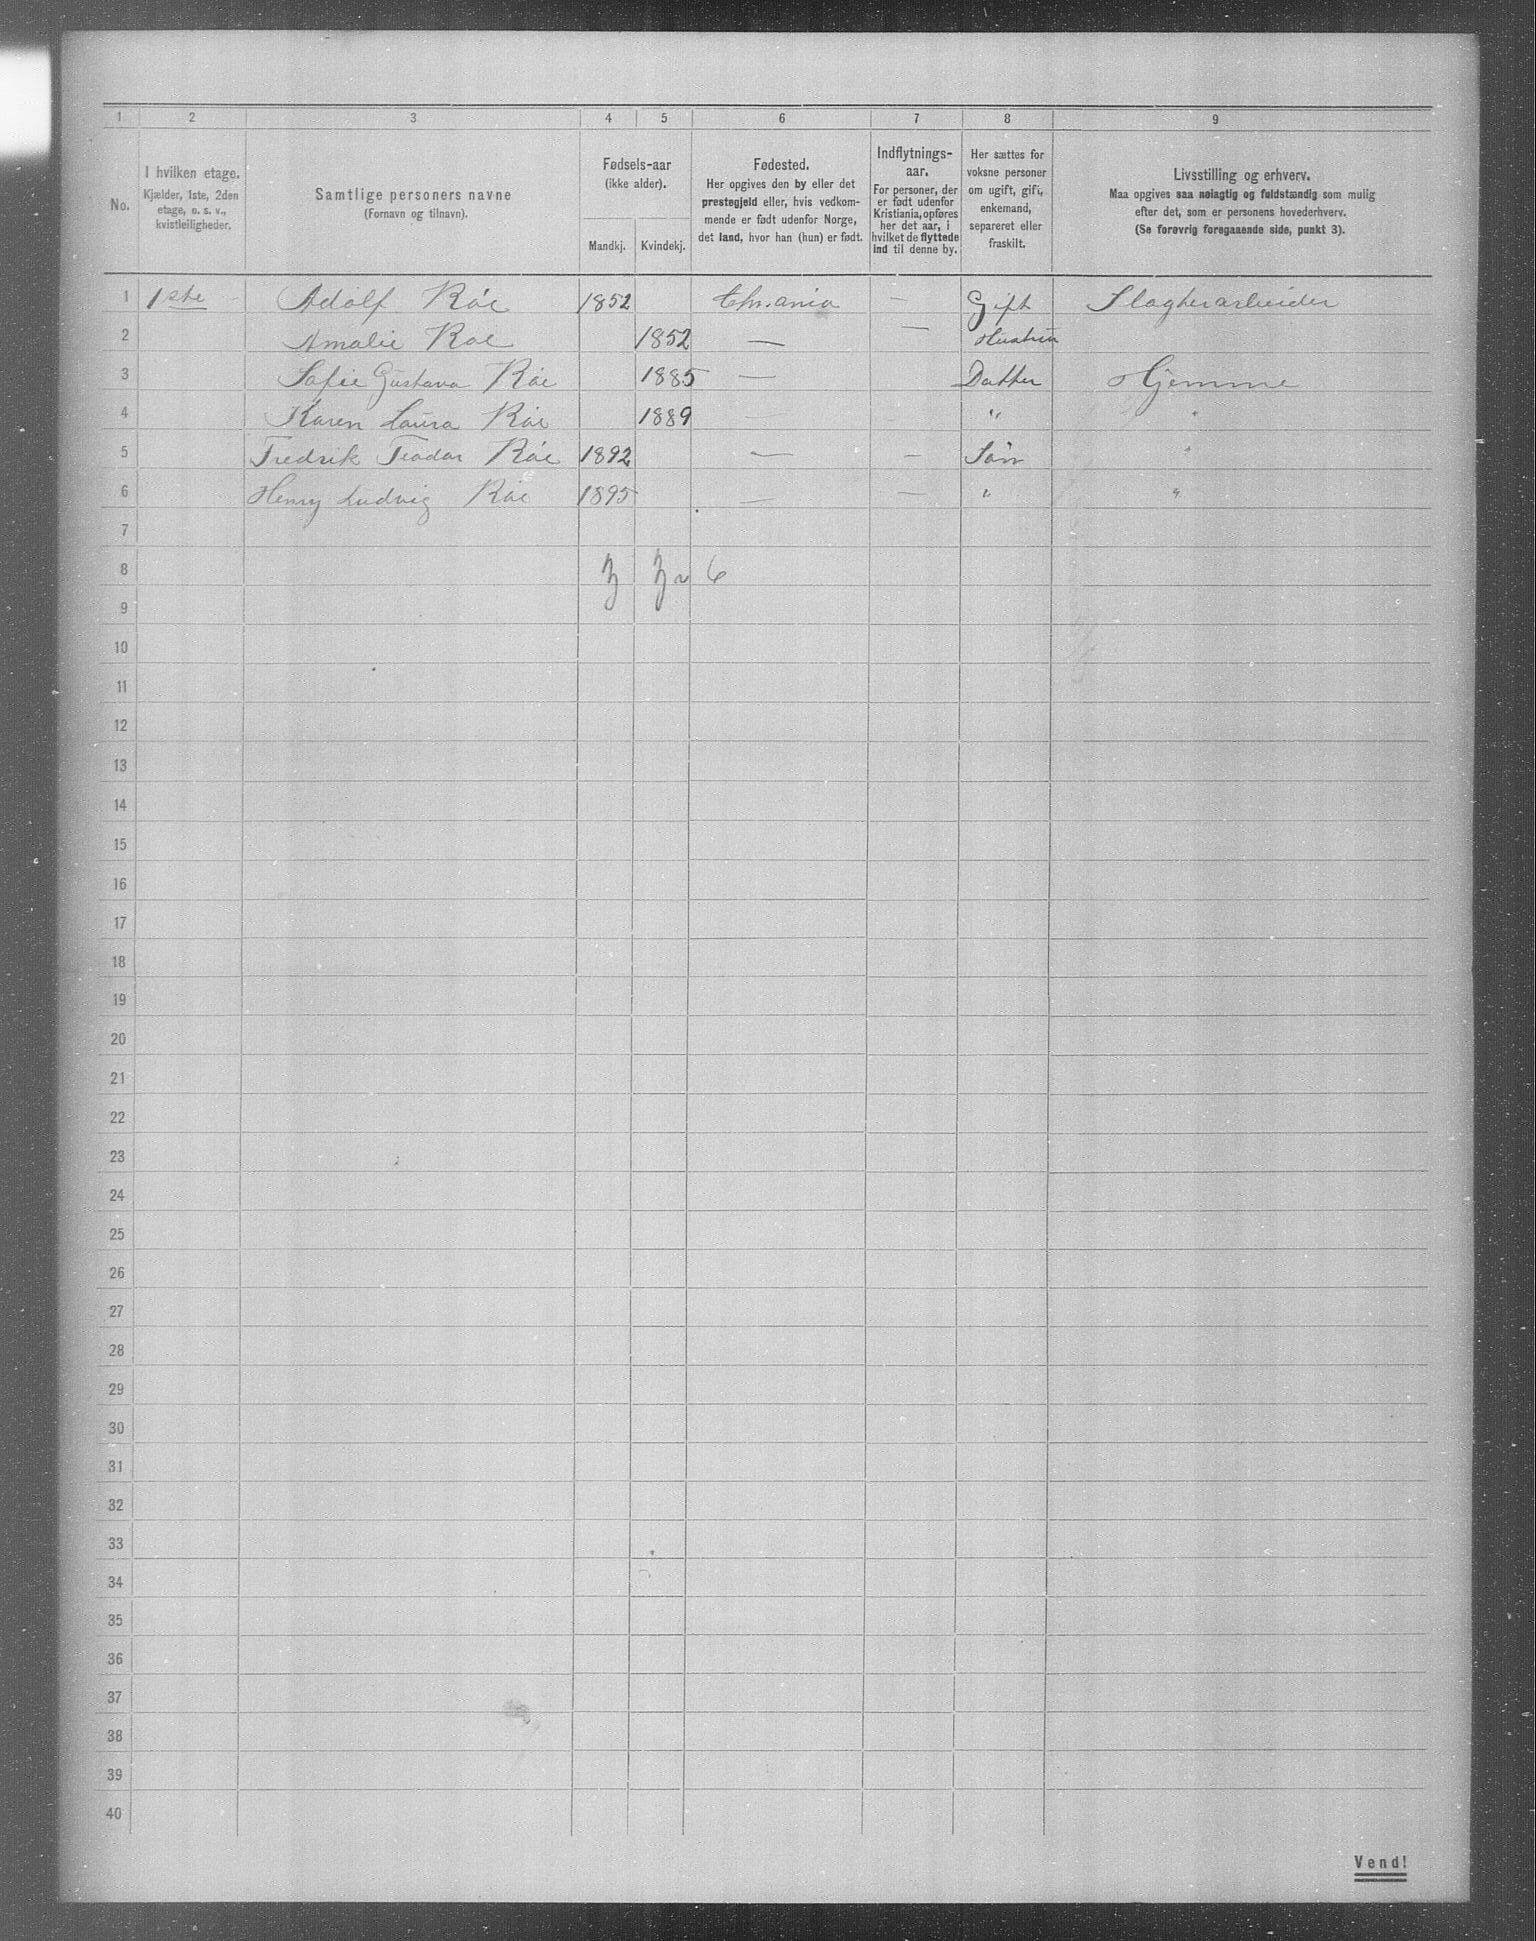 1 2 3 4 5 6 7 8 9
No.
I hvilken etage.
Kjælder, 1ste, 2den
etage, o. s. v.,
kvistleiligheder.
Samtlige personers navne
(Fornavn og tilnavn).
Fødsels-aar
(ikke alder).
Mandkj. Kvindekj.
Fødested.
Her opgives den by eller det
prestegjeld eller, hvis vedkom-
mende er født udenfor Norge,
det land, hvor han (hun) er født.
Indflytnings-
aar.
For personer, der
er født udenfor
Kristiania, opføres
her det aar, i
hvilket de flyttede
ind til denne by.
Her sættes for
voksne personer
om ugift, gift,
enkemand,
separeret eller
fraskilt.
Livsstilling og erhverv.
Maa opgives saa nøiagtig og fuldstændig som mulig
efter det, som er personens hovederhverv.
(Se forøvrig foregaaende side, punkt 3).
1 1ste Adolf Róe 1852 Chr.ania — Gift Slagterarbeider
2 Amalie Roe 1852 — — Hustru
3 Sofie Gustava Róe 1885 — Datter Hjemme
4 Karen Laura Róe 1889 — - " "
5 Fredrik Teodor Róe 1892 — — Søn "
6 Henry Ludvig Róe 1895 — — " "
7
8 3 3 6
9
10
11
12
13
14
15
16
17
18
19
20
21
22
23
24
25
26
27
28
29
30
31
32
33
34
35
36
37
38
39
40
Vend!